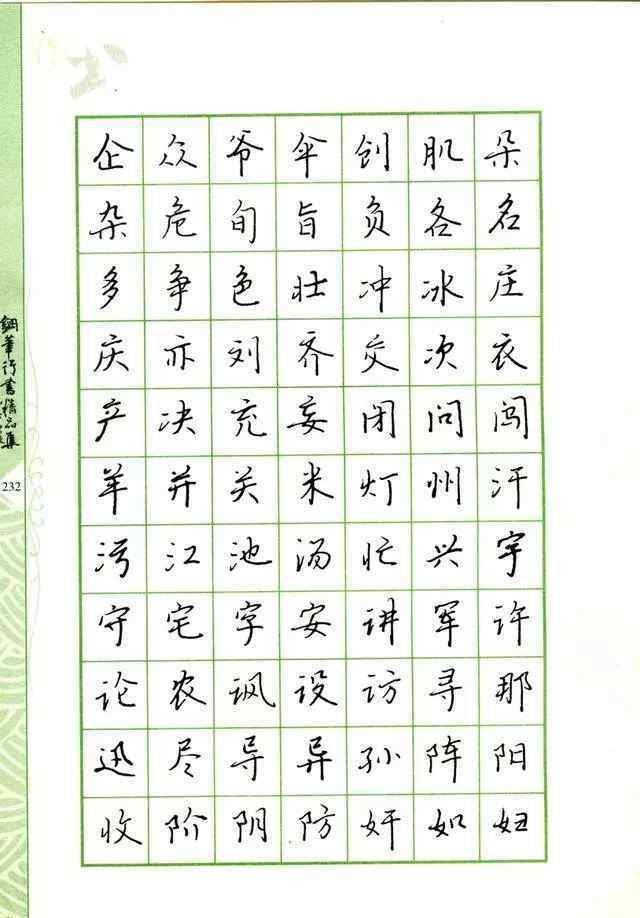 企众爷伞创肌朵
杂危旬旨负各名
多争色壮冲冰庄
庆亦刘齐交次衣
产决充妄闭问闯
羊并关米灯州汗
污江池汤忙兴宇
守宅字安讲军许
论农讽设访寻那
迅尽导异孙阵阳
收阶阴防奸如妇
鋼筆行書精品集
232